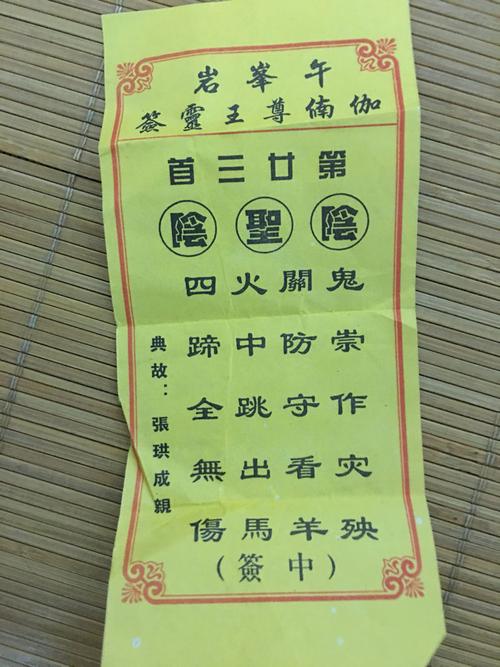 午峯岩
伽㑲尊王靈簽
第廿三首
陰聖陰
鬼崇作灾殃
關防守看羊
火中跳出馬
四蹄全無傷
典故：張珙成親
（中簽）